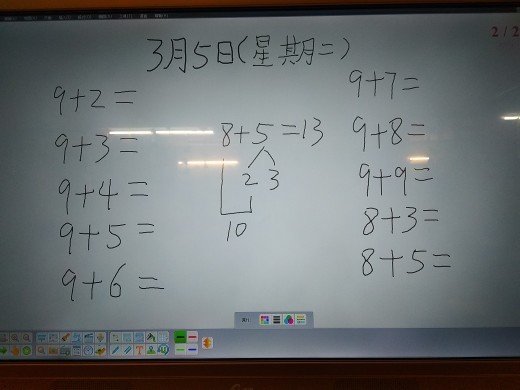 2/2
3月5日(星期二)
9+2=
9+3=
9+4=
9+5=
9+6=
8+5=13
2 3
10
9+7=
9+8=
9+9=
8+3=
8+5=